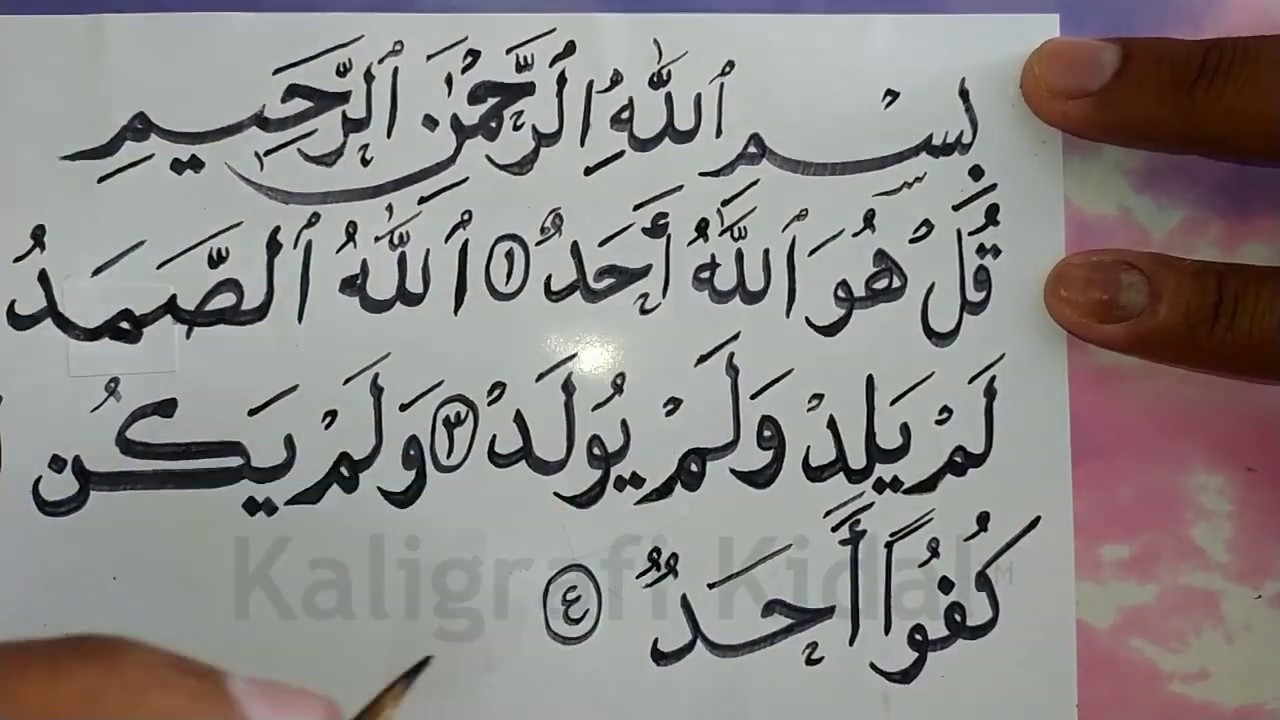 بِسْمِ ٱللَّهِ ٱلرَّحْمَٰنِ ٱلرَّحِيمِ
قُلْ هُوَ ٱللَّهُ أَحَدٌ ١ ٱللَّهُ ٱلصَّمَدُ
لَمْ يَلِدْ وَلَمْ يُولَدْ ٣ وَلَمْ يَكُن
كُفُوًا أَحَدٌ ٤
Kaligrafi Kidal